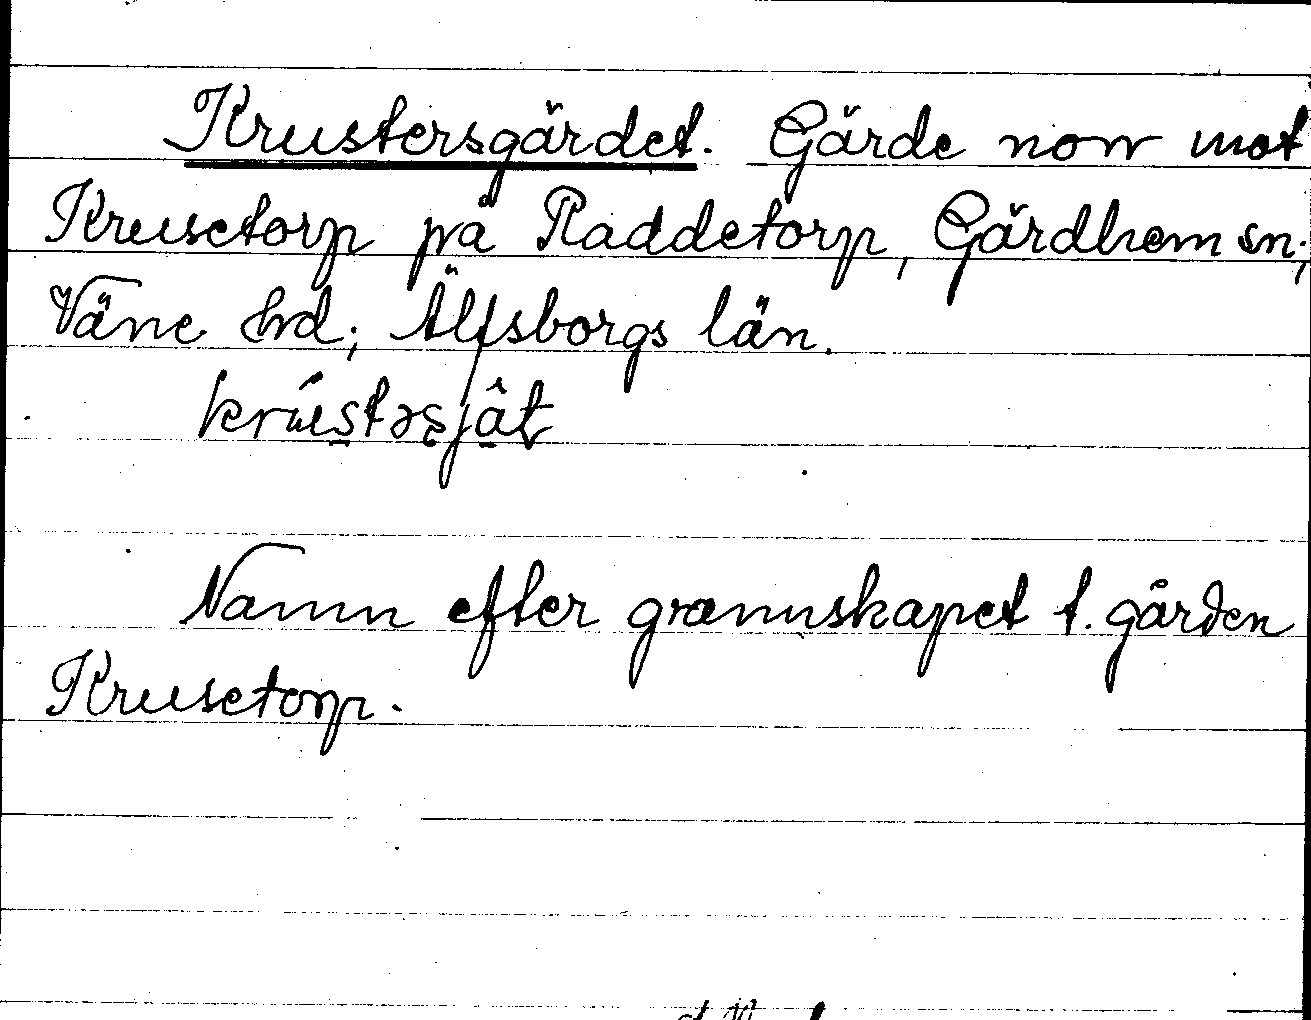 Krustersgärdet. Gärde norr mot
Krusetorp på Raddetorp, Gärdhem sn;
Väne hd; Älfsborgs län.
Namn efter grannskapet t. gården
Krusetorp.